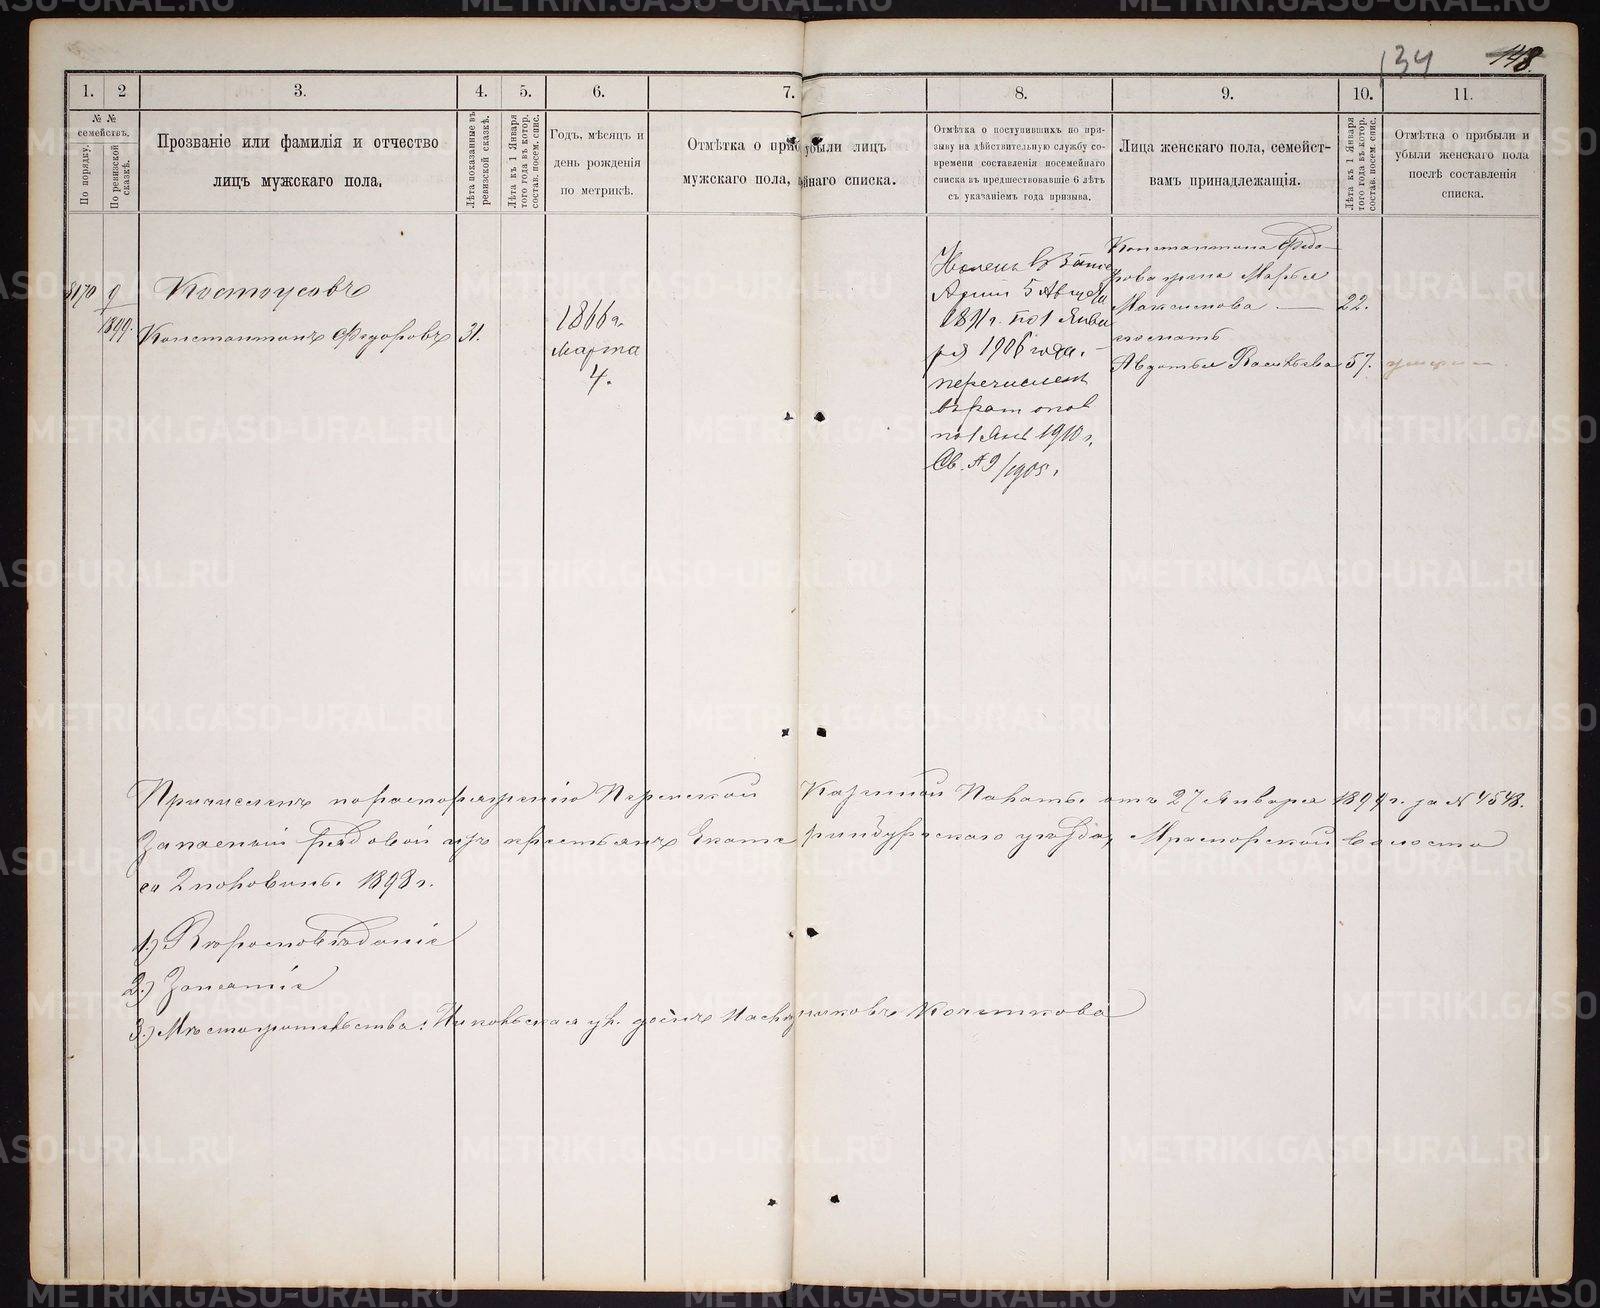 134
148.
1. 2 3. 4. 5. 6. 7. 8. 9. 10. 11.
№ №
семействъ.
По порядку.
По ревизской
сказкѣ.
Прозваніе или фамилія и отчество
лицъ мужскаго пола.
Лѣта показанные въ
ревизской сказкѣ.
Лѣта къ 1 Января
того года въ котор.
состав. посем. спис.
Годъ, мѣсяцъ и
день рожденія
по метрикѣ.
Отмѣтка о приб убыли лицъ
мужскаго пола, ейнаго списка.
Отмѣтка о поступившихъ по при-
зыву на дѣйствительную службу со-
времени составленія посемейнаго
списка въ предшествовавшіе 6 лѣтъ
съ указаніемъ года призыва.
Лица женскаго пола, семейст-
вамъ принадлежащія.
Лѣта къ 1 Января
того года въ котор.
состав. посем. спис.
Отмѣтка о прибыли и
убыли женскаго пола
послѣ составленія
списка.
8170 9/1899.
Костоусовъ
Константинъ Федоровъ 31.
1866 г.
марта
4.
5 Августа
1891 г. по 1 Янва
ря 1906 года.
перечисленъ
въ рат опол
по 1 Янв 1910 г.
Св. № 9/1905.
Константина Федо-
рова жена Марья
Максимова — 22.
его мать
Авдотья Васильева 57.
Причисленъ по распоряженію Пермской Казенной Палаты отъ 27 Января 1899 г. за № 4548.
Запасный рядовой изъ крестьянъ Екатеринбургскаго уѣзда, Мраморской волости
со 2 половины 1898 г.
1.) Вѣроисповѣданіе
2.) Занятіе
3.) Мѣстожительства: Никольская ул. домъ Наслѣдниковъ Кочеткова